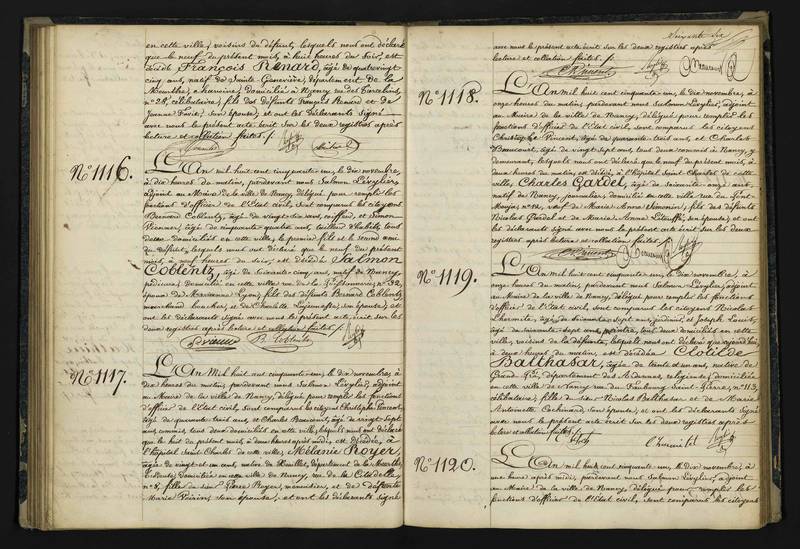 en cette ville, voisins du défunt, lesquels nous ont déclaré
que le neuf du présent mois, à huit heures du soir, est
décédé François Renard, âgé de quatrevingt
cinq ans, natif de Sainte Geneviève, département de la
Meurthe, domicilié à Nancy rue des
n° 28, célibataire, fils des défunts François Renard et de
Jeanne son épouse, et ont les déclarants signé
avec nous le présent acte écrit sur les deux registres après
lecture et collation faites
N° 1116.
L'An mil huit cent cinquante-un, le dix novembre,
à dix heures du matin, pardevant nous Salmon Lévylier,
adjoint au Maire de la ville de Nancy, délégué pour remplir les
fonctions d'officier de l'Etat civil, sont comparus les citoyens
Bernard Coblentz, âgé de vingt-six ans, coiffeur, et Simon
âgé de cinquante-quatre ans, tailleur d'habits, tous
deux domiciliés en cette ville, le premier fils et le second ami
du défunt, lesquels nous ont déclaré que le neuf du présent
mois, à neuf heures du soir, est décédé Salmon
Coblentz, âgé de soixante-cinq ans, natif de Nancy,
domicilié en cette ville rue de la n° 32,
époux de Marianne Lyon, fils des défunts Bernard Coblentz,
marchand boucher, et de son épouse, et
ont les déclarants signé avec nous le présent acte écrit sur les
deux registres après lecture et collation faites
B. Coblentz
N° 1117.
L'An Mil huit cent cinquante-un, le dix novembre, à
dix heures du matin, pardevant nous Salmon Lévylier, adjoint
au Maire de la ville de Nancy, délégué pour remplir les fonctions
d'officier de l'Etat civil, sont comparus les citoyens Christophe Pincent,
âgé de quarante trois ans, et Charles Beaucourt, âgé de vingt sept
ans, commis, tous deux domiciliés en cette ville, lesquels nous ont déclaré
que le huit du présent mois, à deux heures après midi, est décédée, à
l'hôpital Saint Charles de cette ville, Mélanie Royer,
âgée de vingt-et-un ans, native de département de la Meurthe,
domiciliée en cette ville de Nancy, rue de la Citadelle,
n° 8, fille de feu Pierre Royer, et de défunte
Marie son épouse, et ont les déclarants signé
Soixante Six
avec nous le présent acte écrit sur les deux registres après
lecture et collation faites
N° 1118.
L'An mil huit cent cinquante-un, le dix novembre, à
onze heures du matin, pardevant nous Salmon Lévylier, adjoint
au Maire de la ville de Nancy, délégué pour remplir les
fonctions d'officier de l'Etat civil, sont comparus les citoyens
Christophe Pincent, âgé de quarante trois ans, et Charles
Beaucourt, âgé de vingt sept ans, tous deux commis à Nancy, y
demeurant, lesquels nous ont déclaré que le neuf du présent mois, à
deux heures du matin, est décédé, à l'hôpital Saint Charles de cette
ville, Charles Gardel, âgé de soixante-onze ans,
natif de Nancy, journalier, domicilié en cette ville rue du Pont
n° 12, veuf de Marie Anne fils des défunts
Nicolas Gardel et de Marie Anne son épouse; et ont
les déclarants signé avec nous le présent acte écrit sur les deux
registres après lecture et collation faites.
N° 1119.
L'An mil huit cent cinquante-un, le dix novembre, à
onze heures du matin, pardevant nous Salmon Lévylier, adjoint
au Maire de la ville de Nancy, délégué pour remplir les fonctions
d'officier de l'Etat civil, sont comparus les citoyens Nicolas
âgé de soixante-sept ans, jardinier, et Joseph
âgé de soixante-sept ans, peintre, tous deux domiciliés en cette
ville, voisins de la défunte, lesquels nous ont déclaré que aujourd'hui,
à deux heures du matin, est décédée Clotilde
Balthasar, âgée de trente et un ans, native de
Grand département des Vosges, religieuse, domiciliée
en cette ville de Nancy rue du Faubourg Saint Pierre, n° 113,
célibataire, fille du sieur Nicolas Balthasar et de Marie
Antoinette son épouse; et ont les déclarants signé
avec nous le présent acte écrit sur les deux registres après
lecture et collation faites
N° 1120.
L'An mil huit cent cinquante-un, le dix novembre, à
une heure après midi, pardevant nous Salmon Lévylier, adjoint
au Maire de la ville de Nancy, délégué pour remplir les
fonctions d'officier de l'Etat civil, sont comparus les citoyens